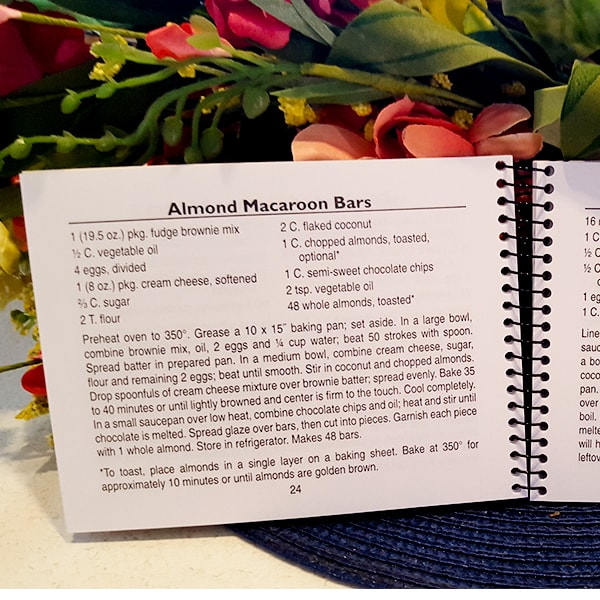 Almond Macaroon Bars
1 (19.5 oz.) pkg. fudge brownie mix
½ C. vegetable oil
4 eggs, divided
1 (8 oz.) pkg. cream cheese, softened
⅔ C. sugar
2 T. flour
2 C. flaked coconut
1 C. chopped almonds, toasted,
optional*
1 C. semi-sweet chocolate chips
2 tsp. vegetable oil
48 whole almonds, toasted*
Preheat oven to 350°. Grease a 10 x 15˝ baking pan; set aside. In a large bowl,
combine brownie mix, oil, 2 eggs and ¼ cup water; beat 50 strokes with spoon.
Spread batter in prepared pan. In a medium bowl, combine cream cheese, sugar,
flour and remaining 2 eggs; beat until smooth. Stir in coconut and chopped almonds.
Drop spoonfuls of cream cheese mixture over brownie batter; spread evenly. Bake 35
to 40 minutes or until lightly browned and center is firm to the touch. Cool completely.
In a small saucepan over low heat, combine chocolate chips and oil; heat and stir until
chocolate is melted. Spread glaze over bars, then cut into pieces. Garnish each piece
with 1 whole almond. Store in refrigerator. Makes 48 bars.
*To toast, place almonds in a single layer on a baking sheet. Bake at 350° for
approximately 10 minutes or until almonds are golden brown.
24
16
1 C
½ C
½ C
1 eg
1 C.
Line
sauc
a bo
coco
pan.
over
boil.
melte
will h
leftov